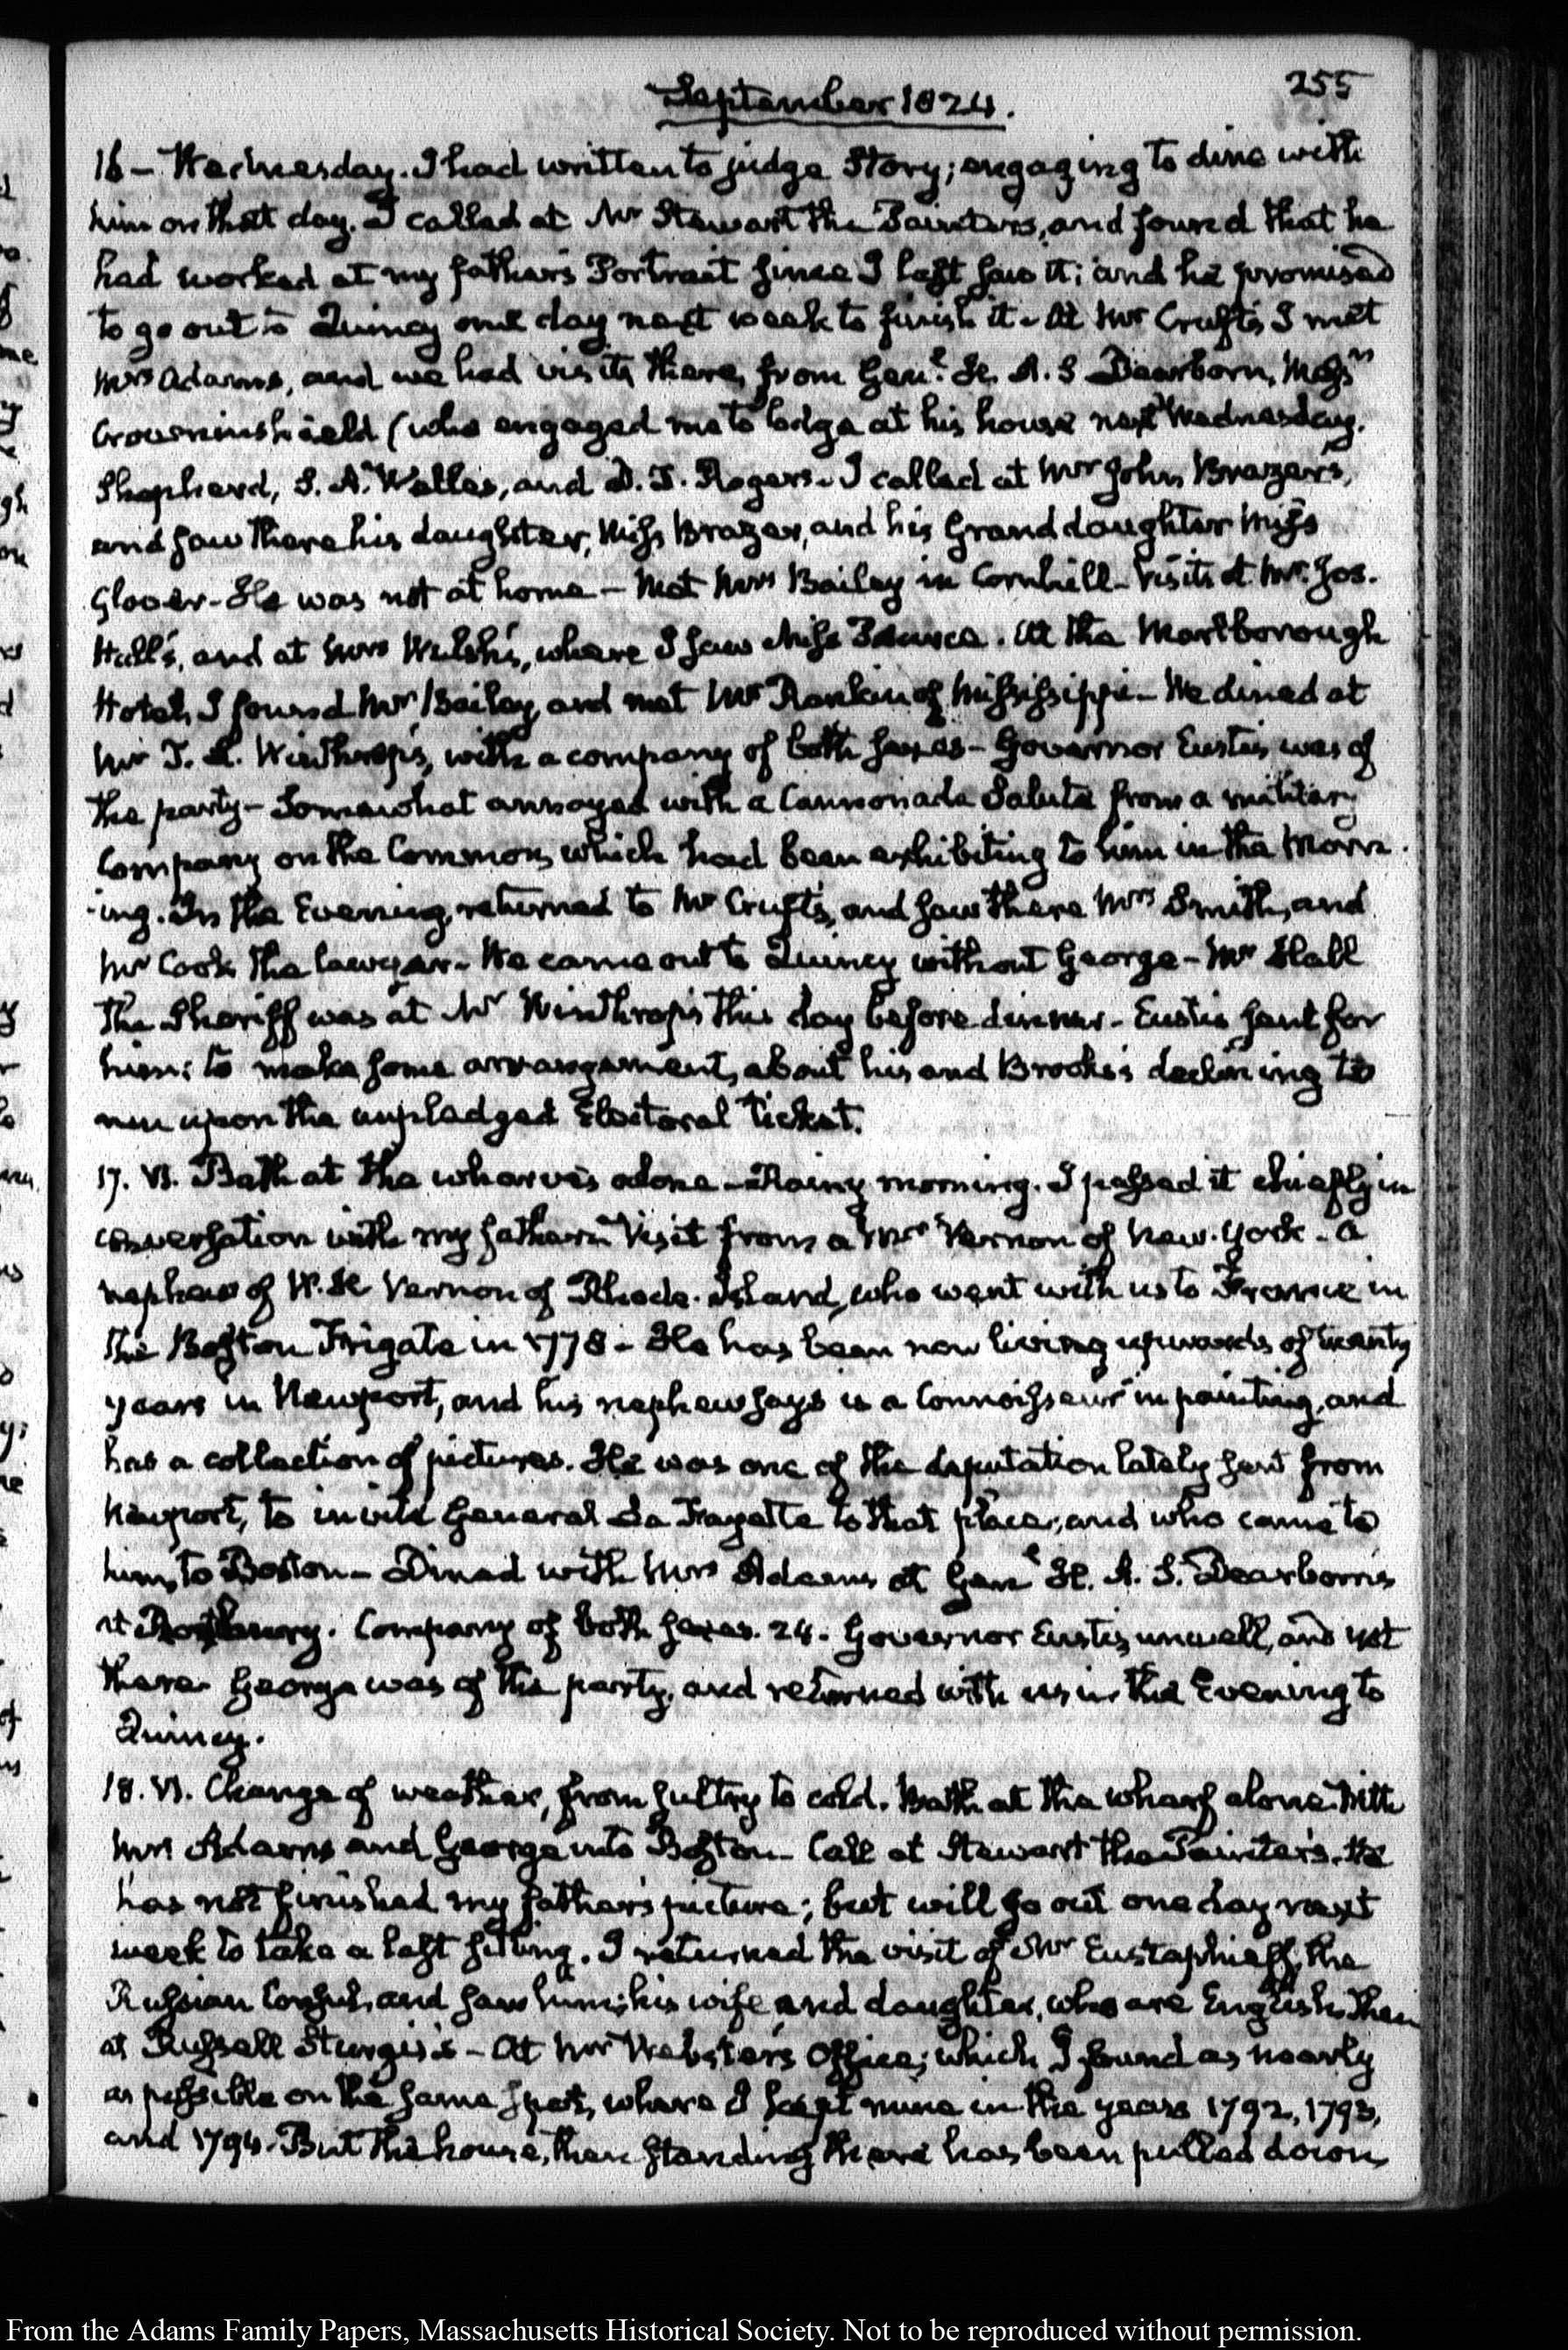 255
September 1824.
16 – Wednesday. I had written to judge Story; engaging to dine with
him on that day. I called at Mr Stewart the Painter's, and found that he
had worked at my father's Portrait since I last saw it; and he promised
to go out to Quincy one day next week to finish it – At Mr Cruft's, I met
Mrs Adams, and we had visits there, from Genl. H. A. S Dearborn, Messrs
Crowninshield (who engaged me to lodge at his house next Wednesday.
Shepherd, S. A. Welles, and D. J. Rogers – I called at Mr John Brazer's,
and saw there his daughter, Miss Brazer, and his Granddaughter Miss
Glover – He was not at home – Met Mrs Bailey in Cornhill – Visits at Mr. Jos.
Hall's, and at Mrs Welsh's, where I saw Miss . At the Marlborough
Hotel, I found Mr Bailey, and met Mr Rankin of Mississippi – We dined at
Mr T. L. Winthrop's, with a company of both sexes – Governor Eustis was of
the party – Somewhat annoyed with a Cannonade Salute from a military
Company on the Common, which had been exhibiting to him in the Morn-
-ing. In the Evening, returned to Mr Cruft's, and saw there Mrs Smith, and
Mr Cook the lawyer – We came out to Quincy without George – Mr Hall
the Sheriff was at Mr Winthrop's this day before dinner – Eustis sent for
him; to make some arrangement, about his and Brooks's declining to
run upon the unpledged Electoral ticket.
17. VI. Bath at the wharves alone – Rainy morning. I passed it chiefly in
conversation with my father – Visit from a Mr Vernon of New-York – a
nephew of W. H Vernon of Rhode-Island, who went with us to France in
the Boston Frigate in 1778 – He has been now living upwards of twenty
years in Newport, and his nephew says is a Connoisseur in painting, and
has a collection of pictures. He was one of the deputation lately sent from
Newport, to invite General La Fayette to that place; and who came to
him, to Boston – Dined with Mrs Adams at Genl H. A. S. Dearborn's
at Roxbury. Company of both sexes. 24. Governor Eustis, unwell, and yet
there. George was of the party, and returned with us in the Evening to
Quincy.
18. VI. Change of weather, from sultry to cold. Bath at the wharf alone. With
Mrs Adams and George into Boston – Call at Stewart the Painter's. He
has not finished my father's picture; but will go out one day next
week to take a last sitting. I returned the visit of Mr Eustaphieff, the
Russian Consul, and saw him; his wife and daughter, who are English. Then
at Russell Sturgis's – At Mr Webster's Office; which I found as nearly
as possible on the same spot, where I kept mine in the years 1792, 1793,
and 1794. But the house, then standing there has been pulled down,
From the Adams Family Papers, Massachusetts Historical Society. Not to be reproduced without permission.